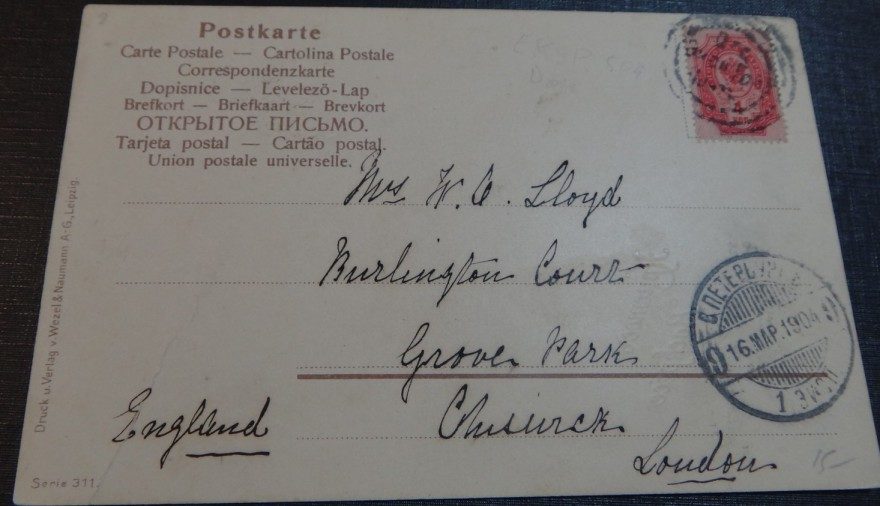 Postkarte
Carte Postale — Cartolina Postale
Correspondenzkarte
Dopisnice — Levelező-Lap
Brefkort — Briefkaart — Brevkort
ОТКРЫТОЕ ПИСЬМО.
Tarjeta postal — Cartão postal.
Union postale universelle.
Mrs W. C. Lloyd
Burlington Court
Grove Park
Chiswick
London
England
С.ПЕТЕРБУРГ
16.МАР.1904
Druck u. Verlag v. Wezel & Naumann A-G., Leipzig.
Serie 311.
15-